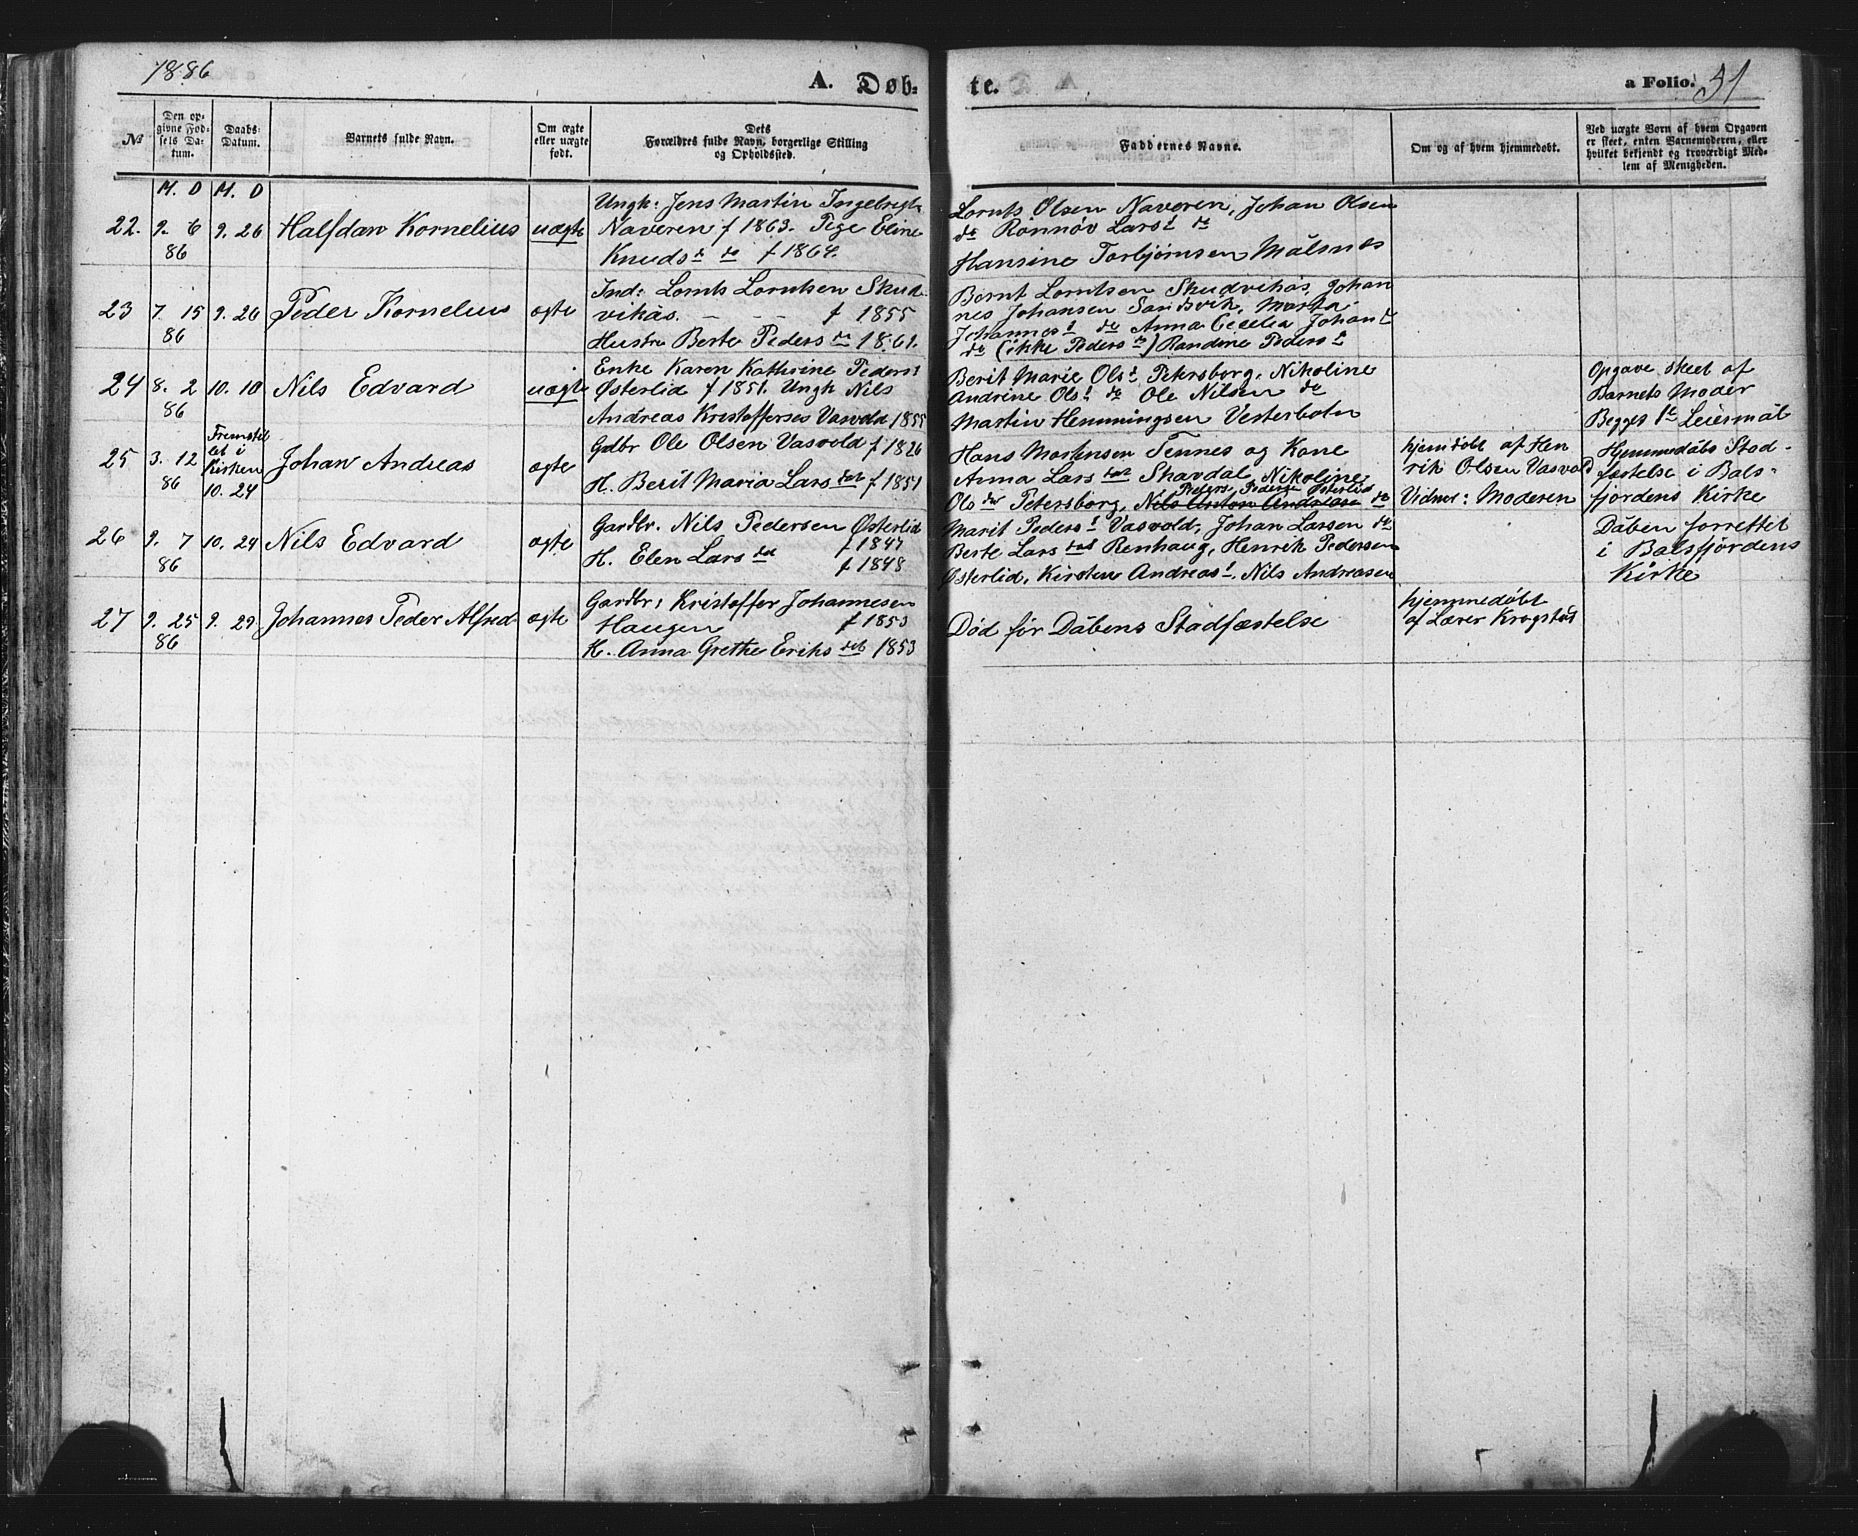 1886
A. Døb-
te.
a Folio. 51
№
Den op-
givne Fød-
sels Da-
tum.
Daabs-
Datum.
Barnets fulde Navn.
Om ægte
eller uægte
født.
Dets
Forældres fulde Navn, borgerlige Stilling
og Opholdssted.
Faddernes Navne.
Om og af hvem hjemmedøbt.
Ved uægte Børn af hvem Opgaven
er skeet, enten Barnemoderen, eller
hvilket bekjendt og troværdigt Med-
lem af Menigheden.
M. D M. D
22. 9. 6 9. 26 Halfdan Kornelius uægte
86
Ungk: Jens Martin Ingebrigts
Naveren f 1863. Pige Eline
Knudsd. do f 1864.
Lornts Olsen Naveren, Johan Olsen
do Rønnøv Larsd do
Hansine Torbjørnsen Målsnes
23 7. 15 9. 26 Peder Kornelius ægte
86
Ind: Lornts Lorntsen Skud-
vikås. - - f 1855
Hustru Berte Peders da 1861.
Bernt Lorntsen Skudvikås, Johan
nes Johansen Sandsvik, Marta
Johannesd do Anna Cecelia Johan d
do (ikke Peders d) Randine Peders d
24 8. 2 10. 10 Nils Edvard uægte
86
Enke Karen Kathrine Pedersd
Østerlid f 1851. Ungk Nils
Andreas Kristoffersen Vasvold 1855
Berit Marie Olsd Petersborg, Nikoline
Andrine Olsd do Ole Nilsen do
Martin Hemmingsen Vesterbotn
Opgave skeet af
Barnets Moder
Begges 1ste Leiermål
25 3. 12 Fremstil
let i
Kirken
10. 24 Johan Andreas ægte
86
Gdbr Ole Olsen Vasvold f 1826
H. Berit Maria Lars dat f 1851
Hans Mortensen Tennes og Kone
Anna Lars dat Skavdal, Nikoline
Ols dat Petersborg, Nils Anton Andreasen do
Peders Pedersen Østerlid
hjemdøbt af Hen
rik Olsen Vasvold
Vidner: Moderen
Hjemmedåbs Stad-
fæstelse i Bals-
fjordens Kirke
26 9. 7 10. 24 Nils Edvard ægte
86
Gardbr. Nils Pedersen Østerlid
f 1847
H. Elen Lars dat f 1848
Marit Pedersd Vasvold, Johan Larsen do
Berte Lars dat Renhaug, Henrik Pedersen
Østerlid, Kirsten Andreasd, Nils Andreasen
Dåben forrettet
i Balsfjordens
Kirke
27 9. 25 9. 29 Johannes Peder Alfred ægte
86
Gardbr: Kristoffer Johannesen
Haugen f 1853
K. Anna Grethe Eriks dat 1853
Død før Dåbens Stadfæstelse
hjemmedøbt
af Lærer Krogstad